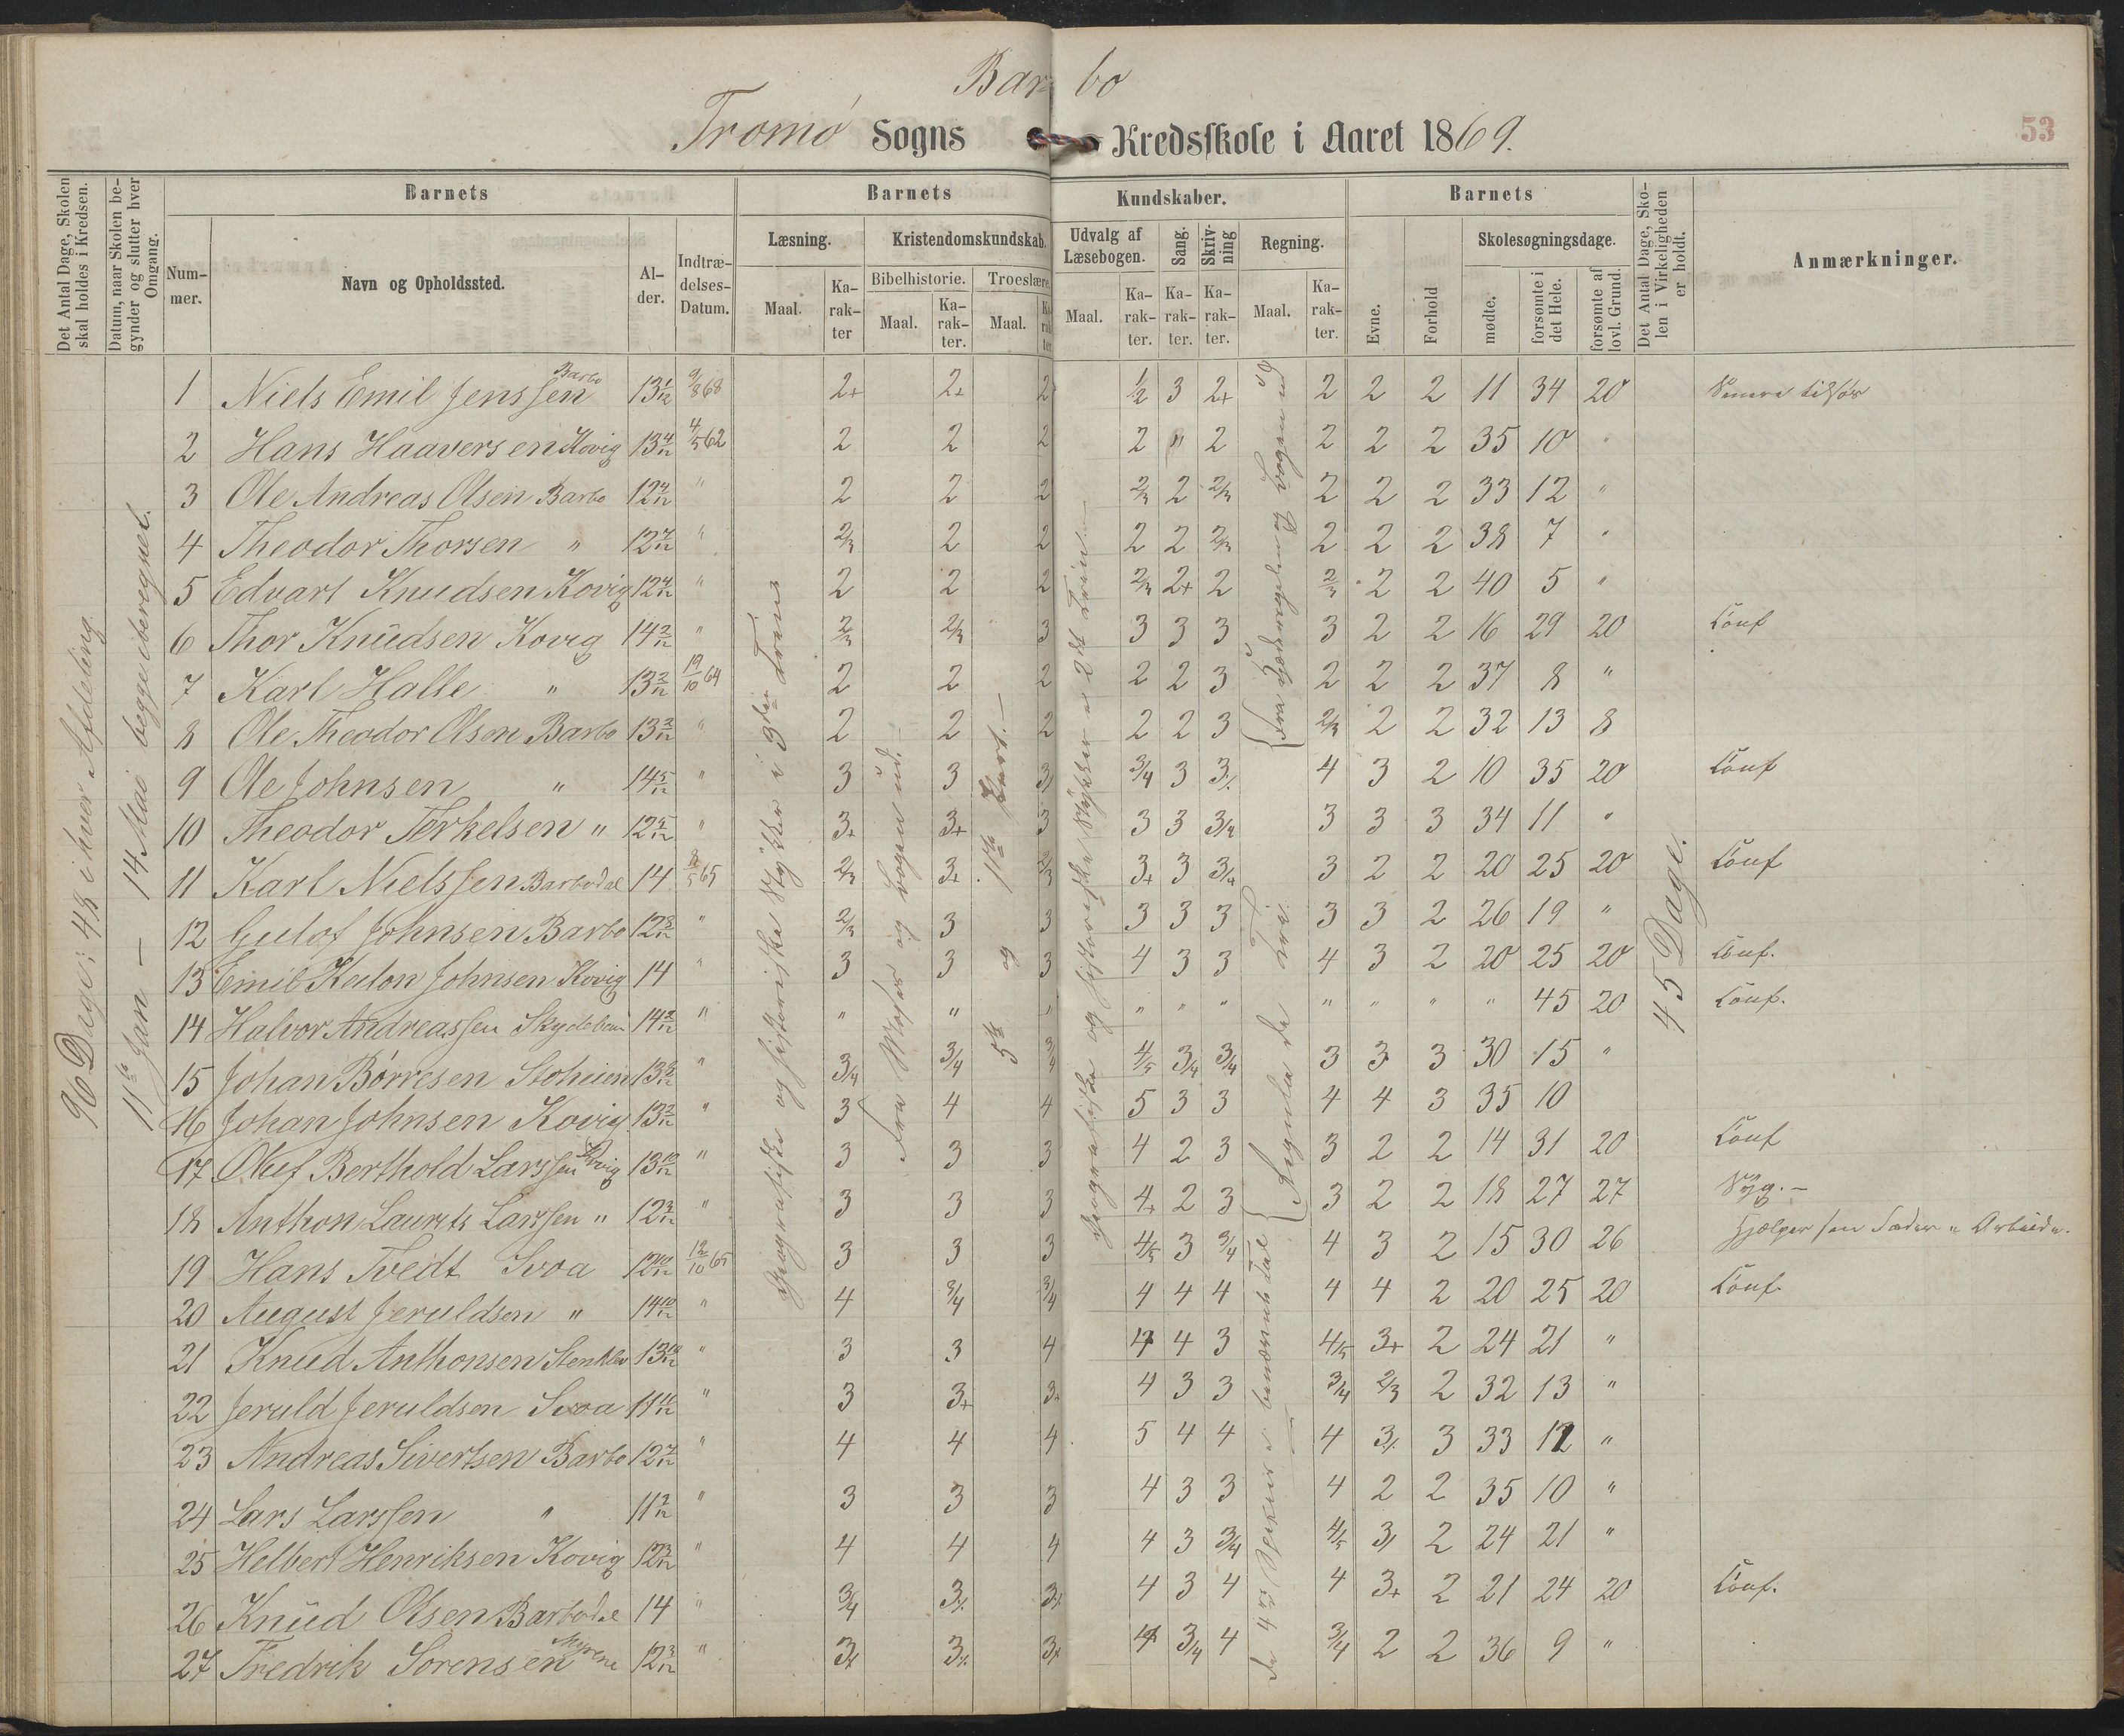 Barbo
Tromø Sogns Kredsskole i Aaret 1869.
53
Det Antal Dage, Skolen skal holdes i Kredsen.
Datum, naar Skolen begynder og slutter hver Omgang.
Barnets
Nummer.
Navn og Opholdssted.
Alder.
Indtrædelses-Datum.
Barnets Kundskaber.
Læsning.
Maal.
Karakter
Kristendomskundskab.
Bibelhistorie.
Maal.
Karakter.
Troeslære.
Maal.
Karakter
Udvalg af Læsebogen.
Maal.
Karakter.
Sang.
Karakter.
Skrivning
Karakter.
Regning.
Maal.
Karakter.
Barnets
Evne.
Forhold
Skolesøgningsdage.
mødte.
forsømte i det Hele.
forsømte af lovl. Grund.
Det Antal Dage, Skolen i Virkeligheden er holdt.
Anmærkninger.
96 Dage; 48 i hver Afdeling.
11te Jan – 14 Mai begge iberegnet.
Geografiske og historiske Stykker i 3die Trin
Fra Moses og Bogen ud. –
5te og 11te Part. –
Geografiske og historiske Stykker i 2det Trin. –
45 Dage.
1 Niels Emil Jenssen Barbo 13 1/12 9/8 68 2+ 2+ 2+ 1/2 3 2+ 2 2 2 11 34 20
2 Hans Haaversen Kovig 13 4/12 4/5 62 2 2 2 2 " 2 2 2 2 35 10 "
3 Ole Andreas Olsen Barbo 12 4/12 " 2 2 2 2/3 2 2/3 2 2 2 33 12 "
4 Theodor Thorsen " 12 7/12 " 2/3 2 2 2 2 2/3 2 2 2 38 7 "
5 Edvart Knudsen Kovig 12 4/12 " 2 2 2 2/3 2+ 2 2/3 2 2 40 5 "
6 Thor Knudsen Kovig 14 2/12 " 2/3 2/3 3 3 3 3 3 2 2 16 29 20 Conf
7 Karl Halle " 13 2/12 19/10 64 2 2 2 2 2 3 2 2 2 37 8 "
8 Ole Theodor Olsen Barbo 13 2/12 " 2 2 2 2 2 3 2/3 2 2 32 13 8
9 Ole Johnsen " 14 5/12 " 3 3 3/ 3/4 3 3/. 4 3 2 10 35 20 Conf
10 Theodor Terkelsen " 12 5/12 " 3+ 3+ 3 3 3 3/4 3 3 3 34 11 "
11 Karl Nielssen Barbodal 14 8/5 65 2/3 3+ 2/3 3+ 3 3/4 3 2 2 20 25 20 Conf
12 Gulof Johnsen Barbo 12 3/12 " 2/3 3 3 3 3 3 3 3 2 26 19 "
13 Emil Kalon Johnsen Kovig 14 " 3 3 3 4 3 3 4 3 2 20 25 20 Conf.
14 Halvor Andreassen 14 2/12 " " " " " " " " " " " 45 20 Conf.
15 Johan Børresen 13 8/12 " 3/4 3/4 3/4 4/5 3/4 3/4 3 3 3 30 15 "
16 Johan Johnsen Kovig 13 2/12 " 3 4 4 5 3 3 4 4 3 35 10
17 Oluf Berthold Larssen Kovig 13 10/12 " 3 3 3 4 2 3 3 2 2 14 31 20 Conf
18 Anthon Laurits Larssen " 12 3/12 " 3 3 3 4+ 2 3 3 2 2 18 27 27 Syg. –
19 Hans Tvedt Svoa 12 10/12 12/10 65 3 3 3 4/5 3 3/4 4 3 2 15 30 26 Hjælper sin Fader i Arbeide.
20 August Jeruldsen " 14 10/12 " 4 3/4 3/4 4 4 4 4 4 2 20 25 20 Conf.
21 Knud Anthonsen Stenklev 13 10/12 " 3 3 4 4 4 3 4/5 3+ 2 24 21 "
22 Jeruld Jeruldsen Svoa 11 11/12 " 3 3+ 3+ 4 3 3 3/4 2/3 2 32 13 "
23 Andreas Sivertsen Barbo 12 7/12 " 4 4 4 5 4 4 4 3/. 3 33 12 "
24 Lars Larssen " 11 2/12 " 3 3 3 4 3 3 4 2 2 35 10 "
25 Helbert Henriksen Kovig 12 3/12 " 4 4 4 4 3 3/4 4/5 3/ 2 24 21 "
26 Knud Olsen Barbodal 14 " 3/4 3/. 3/. 4 3 4 4 3+ 2 21 24 20 Conf.
27 Fredrik Sørensen Myrene 12 3/12 " 3+ 3/. 3/. 4 3/4 4 3/4 2 2 36 9 "